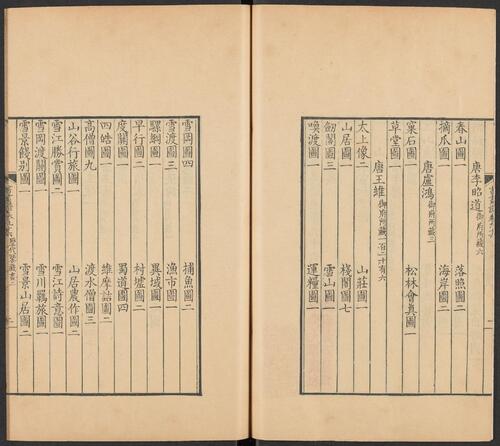 唐李昭道 御府所藏六
春山圖一 落照圖二
摘瓜圖一 海岸圖二
唐盧鴻 御府所藏三
窠石圖一 松林會真圖一
草堂圖一
唐王維 御府所藏一百二十有六
太上像二 山莊圖一
山居圖一 棧閣圖七
劒閣圖三 雪山圖一
喚渡圖一 運糧圖一
雪岡圖四 捕魚圖二
雪渡圖三 漁市圖一
騾綱圖一 異域圖一
早行圖二 村墟圖二
度關圖一 蜀道圖四
四皓圖一 維摩詰圖二
高僧圖九 渡水僧圖三
山谷行旅圖一 山居農作圖二
雪江勝賞圖二 雪江詩意圖一
雪岡渡關圖一 雪川羈旅圖一
雪景餞別圖一 雪景山居圖二